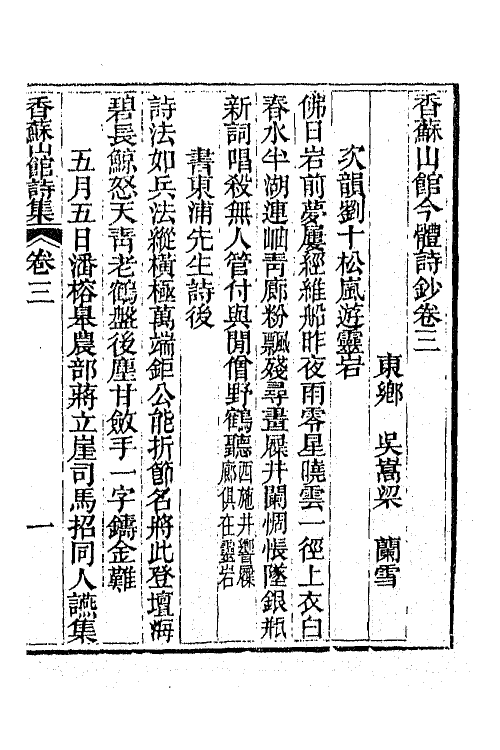 香蘇山館今體詩鈔卷三
東鄉　吳嵩梁　蘭雪
次韻劉十松嵐遊靈岩
佛日岩前夢屢經維船昨夜雨零星曉雲一徑上衣白
春水半湖連岫靑廊粉飄殘尋畫屧井闌惆悵墜銀瓶
新詞唱殺無人管付與閒僧野鶴聽西施井響屧廊俱在靈岩
書東浦先生詩後
詩法如兵法縱橫極萬端鉅公能折節名將此登壇海
碧長鯨怒天靑老鶴盤後塵甘斂手一字鑄金難
五月五日潘榕臯農部蔣立崖司馬招同人讌集
香蘇山館詩集　卷三　一